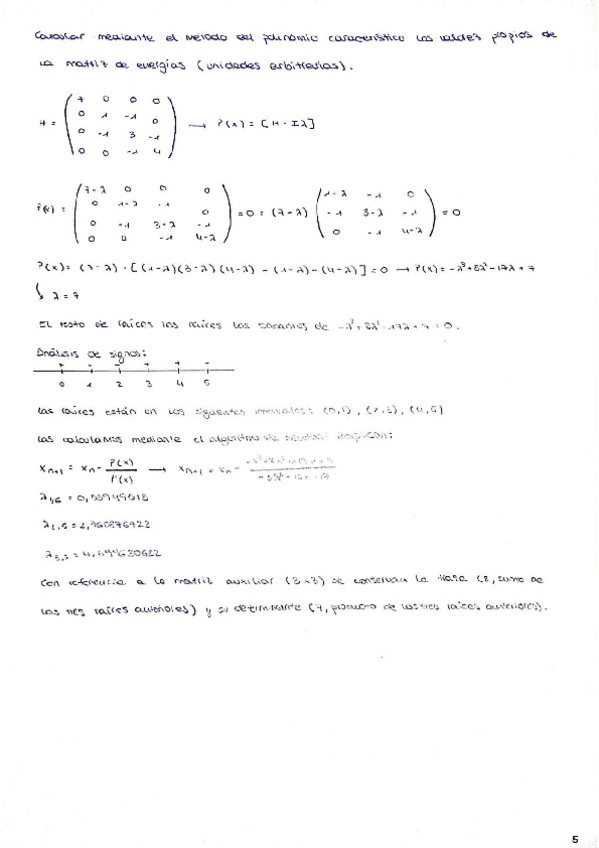 Calcular mediante el método del polinomio característico los valores propios de
la matriz de energías (unidades arbitrarias).
H = ( 7 0 0 0
0 1 -1 0
0 -1 3 -1
0 0 -1 4 ) → P(x) = [H - Iλ]
P(x) = ( 7-λ 0 0 0
0 1-λ -1 0
0 -1 3-λ -1
0 0 -1 4-λ ) = 0 = (7-λ) ( 1-λ -1 0
-1 3-λ -1
0 -1 4-λ ) = 0
P(x) = (7-λ) · [(1-λ)(3-λ)(4-λ) - (1-λ) - (4-λ)] = 0 → P(x) = -λ³+8λ²-17λ+7
↳ λ = 7
El resto de raíces las raíces las sacamos de -λ³+8λ²-17λ+7=0.
Análisis de signos:
+ - - + + -
0 1 2 3 4 5
Las raíces están en los siguientes intervalos: (0,1), (2,3), (4,5)
Las calculamos mediante el algoritmo de Newton Raphson:
Xn+1 = Xn - P(x)/P'(x) → Xn+1 = Xn -
= 2,960876922
Con referencia a la matriz auxiliar (3x3) se conservan la traza (8, suma de
las tres raíces anteriores) y su determinante (7, producto de las tres raíces anteriores).
5